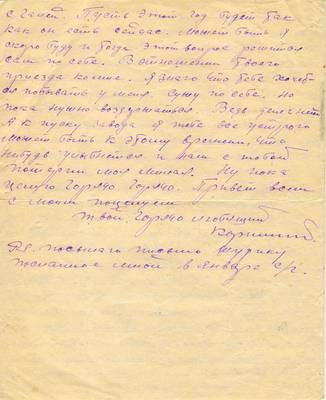 с Галей. Пусть этот год будет так
как он есть сейчас. Может быть я
скоро буду и тогда этот вопрос решится
сам по себе. В отношении твоего
приезда ко мне. Я знаю что тебе хочется
побывать у меня, сужу по себе, но
пока нужно воздержаться. Ведь денег нет
А к пуску завода я тебе все устрою
Может быть к этому времени, что
нибудь учтётся и нам с тобой
моя милая. Ну пока
Целую горячо горячо. Привет всем
с моим поцелуем
Твой горячо любящий
посылаю письмо Шурику
посланное мной в январе с/г.